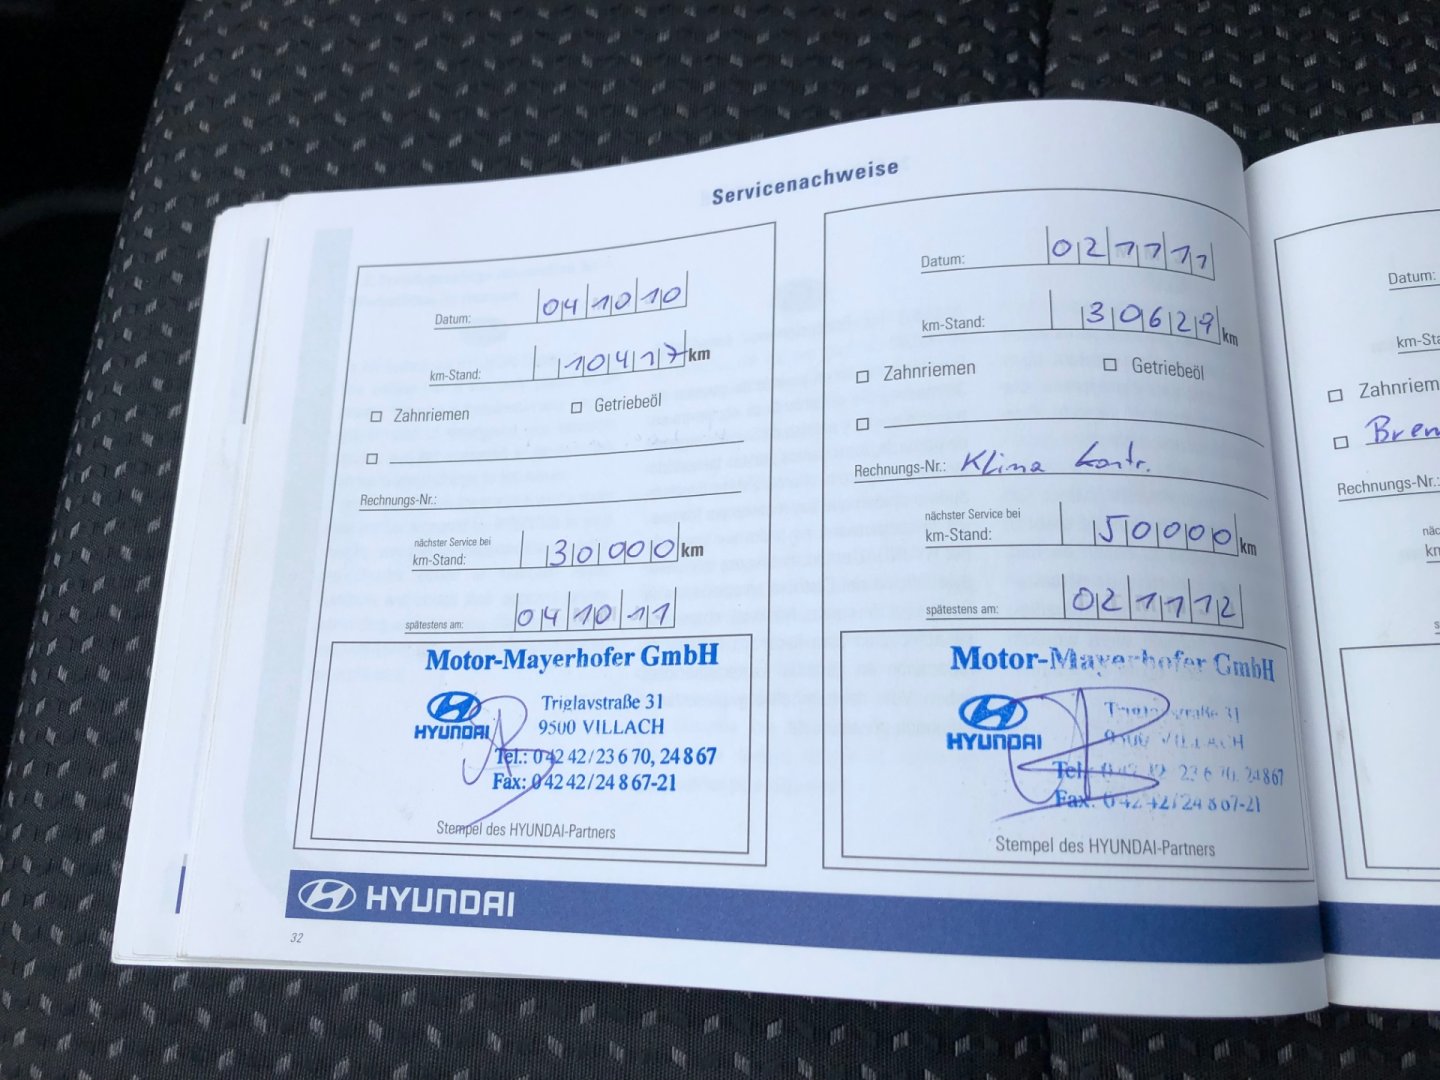 Servicenachweise
Datum: 041010
km-Stand: 10417 km
Zahnriemen Getriebeöl
Rechnungs-Nr.:
nächster Service bei
km-Stand: 30000 km
spätestens am: 041011
Motor-Mayerhofer GmbH
HYUNDAI
Triglavstraße 31
9500 VILLACH
Tel.: 0 42 42/23 6 70, 24 8 67
Fax: 0 42 42/24 8 67-21
Stempel des HYUNDAI-Partners
Datum: 021111
km-Stand: 30629 km
Zahnriemen Getriebeöl
Rechnungs-Nr.: Klima Kontr.
nächster Service bei
km-Stand: 50000 km
spätestens am: 021112
Motor-Mayerhofer GmbH
HYUNDAI
Triglavstraße 31
9500 VILLACH
Tel.: 0 42 42/23 6 70, 24 8 67
Fax: 0 42 42/24 8 67-21
Stempel des HYUNDAI-Partners
HYUNDAI
32
Datum:
km-Sta
Zahnriem
Brem
Rechnungs-Nr.: